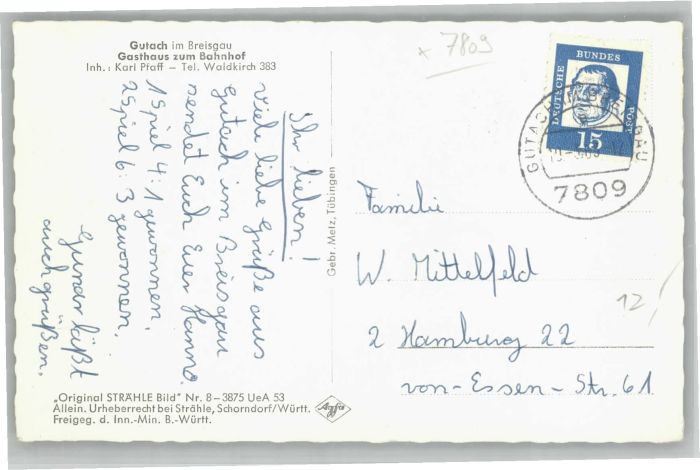 Gutach im Breisgau
Gasthaus zum Bahnhof
Inh.: Karl Pfaff – Tel. Waldkirch 383
Ihr lieben!
Viele liebe Grüße aus
Gutach im Breisgau
sendet Euch Euer Hanno.
1 Spiel 4:1 gewonnen.
2 Spiel 6:3 gewonnen.
Gunar läßt
auch grüßen.
„Original STRÄHLE Bild" Nr. 8–3875 UeA 53
Allein. Urheberrecht bei Strähle, Schorndorf/Württ.
Freigeg. d. Inn.-Min. B.-Württ.
Agfa
Gebr. Metz, Tübingen
x 7809
DEUTSCHE BUNDESPOST
15
GUTACH IM BREISGAU
7809
Familie
W. Mittelfeld
2 Hamburg 22
von-Essen-Str. 61
12/